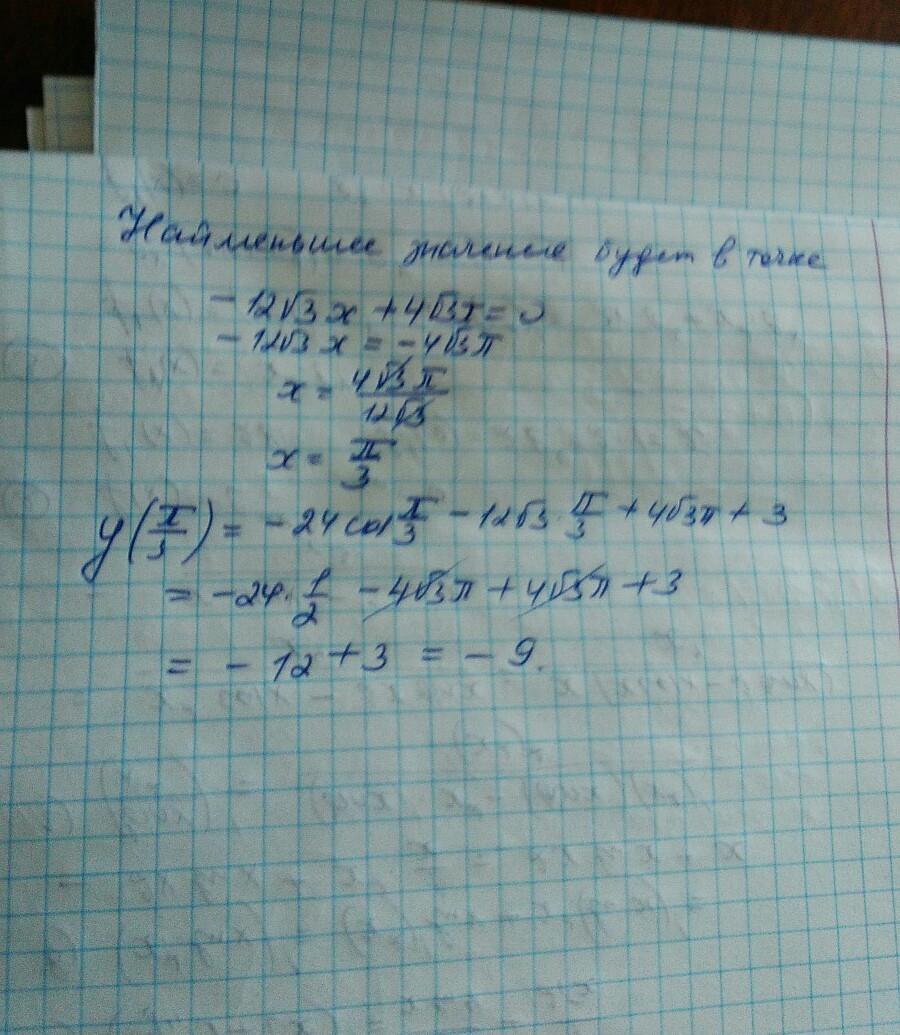 Найменьшее значение будет в точке
- 12√3 x + 4√3π = 0
- 12√3 x = - 4√3 π
x = 4√3 π / 12√3
x = π/3
y(π/3) = - 24 cos π/3 - 12√3 · π/3 + 4√3π + 3
= - 24 · 1/2 - 4√3π + 4√3π + 3
= - 12 + 3 = - 9.